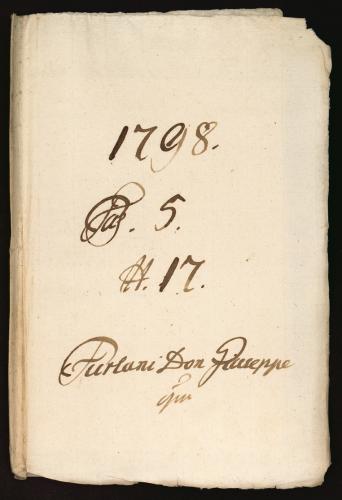 1798.
5.
H. 17.
Furlani Don Giuseppe